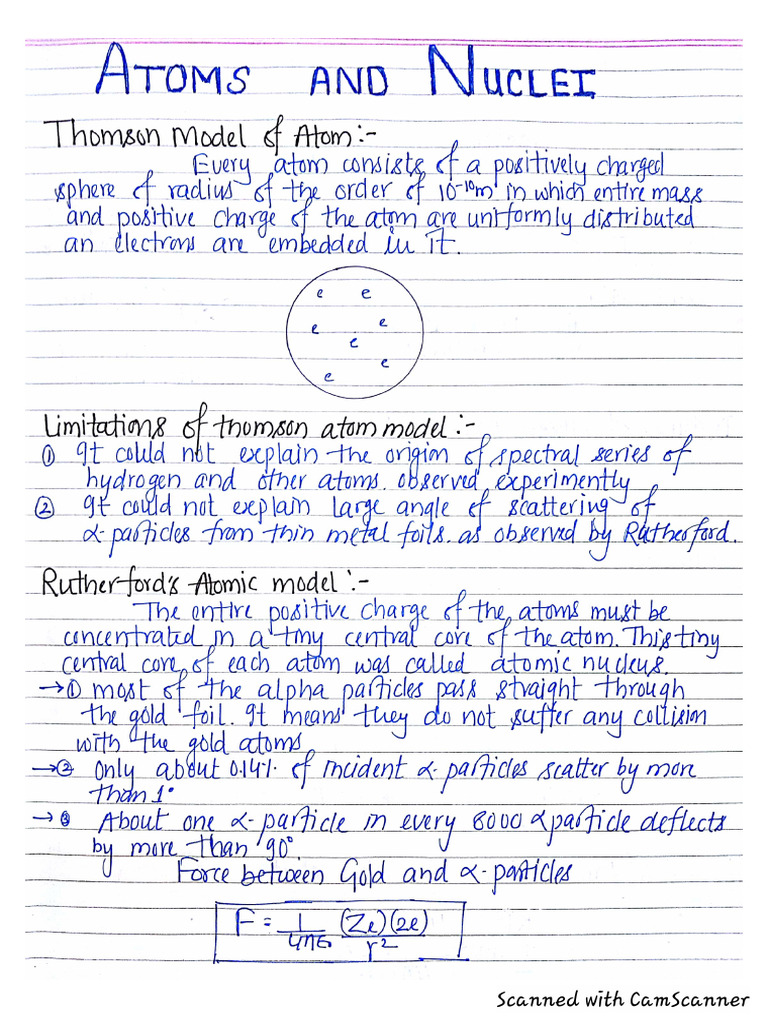 ATOMS AND NUCLEI
Thomson Model of Atom:-
Every atom consists of a positively charged
sphere of radius of the order of 10⁻¹⁰m in which entire mass
and positive charge of the atom are uniformly distributed
an electrons are embedded in it.
e e
e e
e
e
e
Limitations of thomson atom model :-
① It could not explain the origin of spectral series of
hydrogen and other atoms. observed experimently
② It could not explain large angle of scattering of
α-particles from thin metal foils. as observed by Rutherford.
Rutherford's Atomic model :-
The entire positive charge of the atoms must be
concentrated in a tiny central core of the atom. This tiny
central core of each atom was called atomic nucleus.
→① most of the alpha particles pass straight through
the gold foil. It means they do not suffer any collision
with the gold atoms
→② Only about 0.14% of incident α-particles scatter by more
than 1°
→③ About one α-particle in every 8000 α particle deflects
by more than 90°.
Force between Gold and α-particles
F = 1/4πε₀ (Ze)(2e)/r²
Scanned with CamScanner